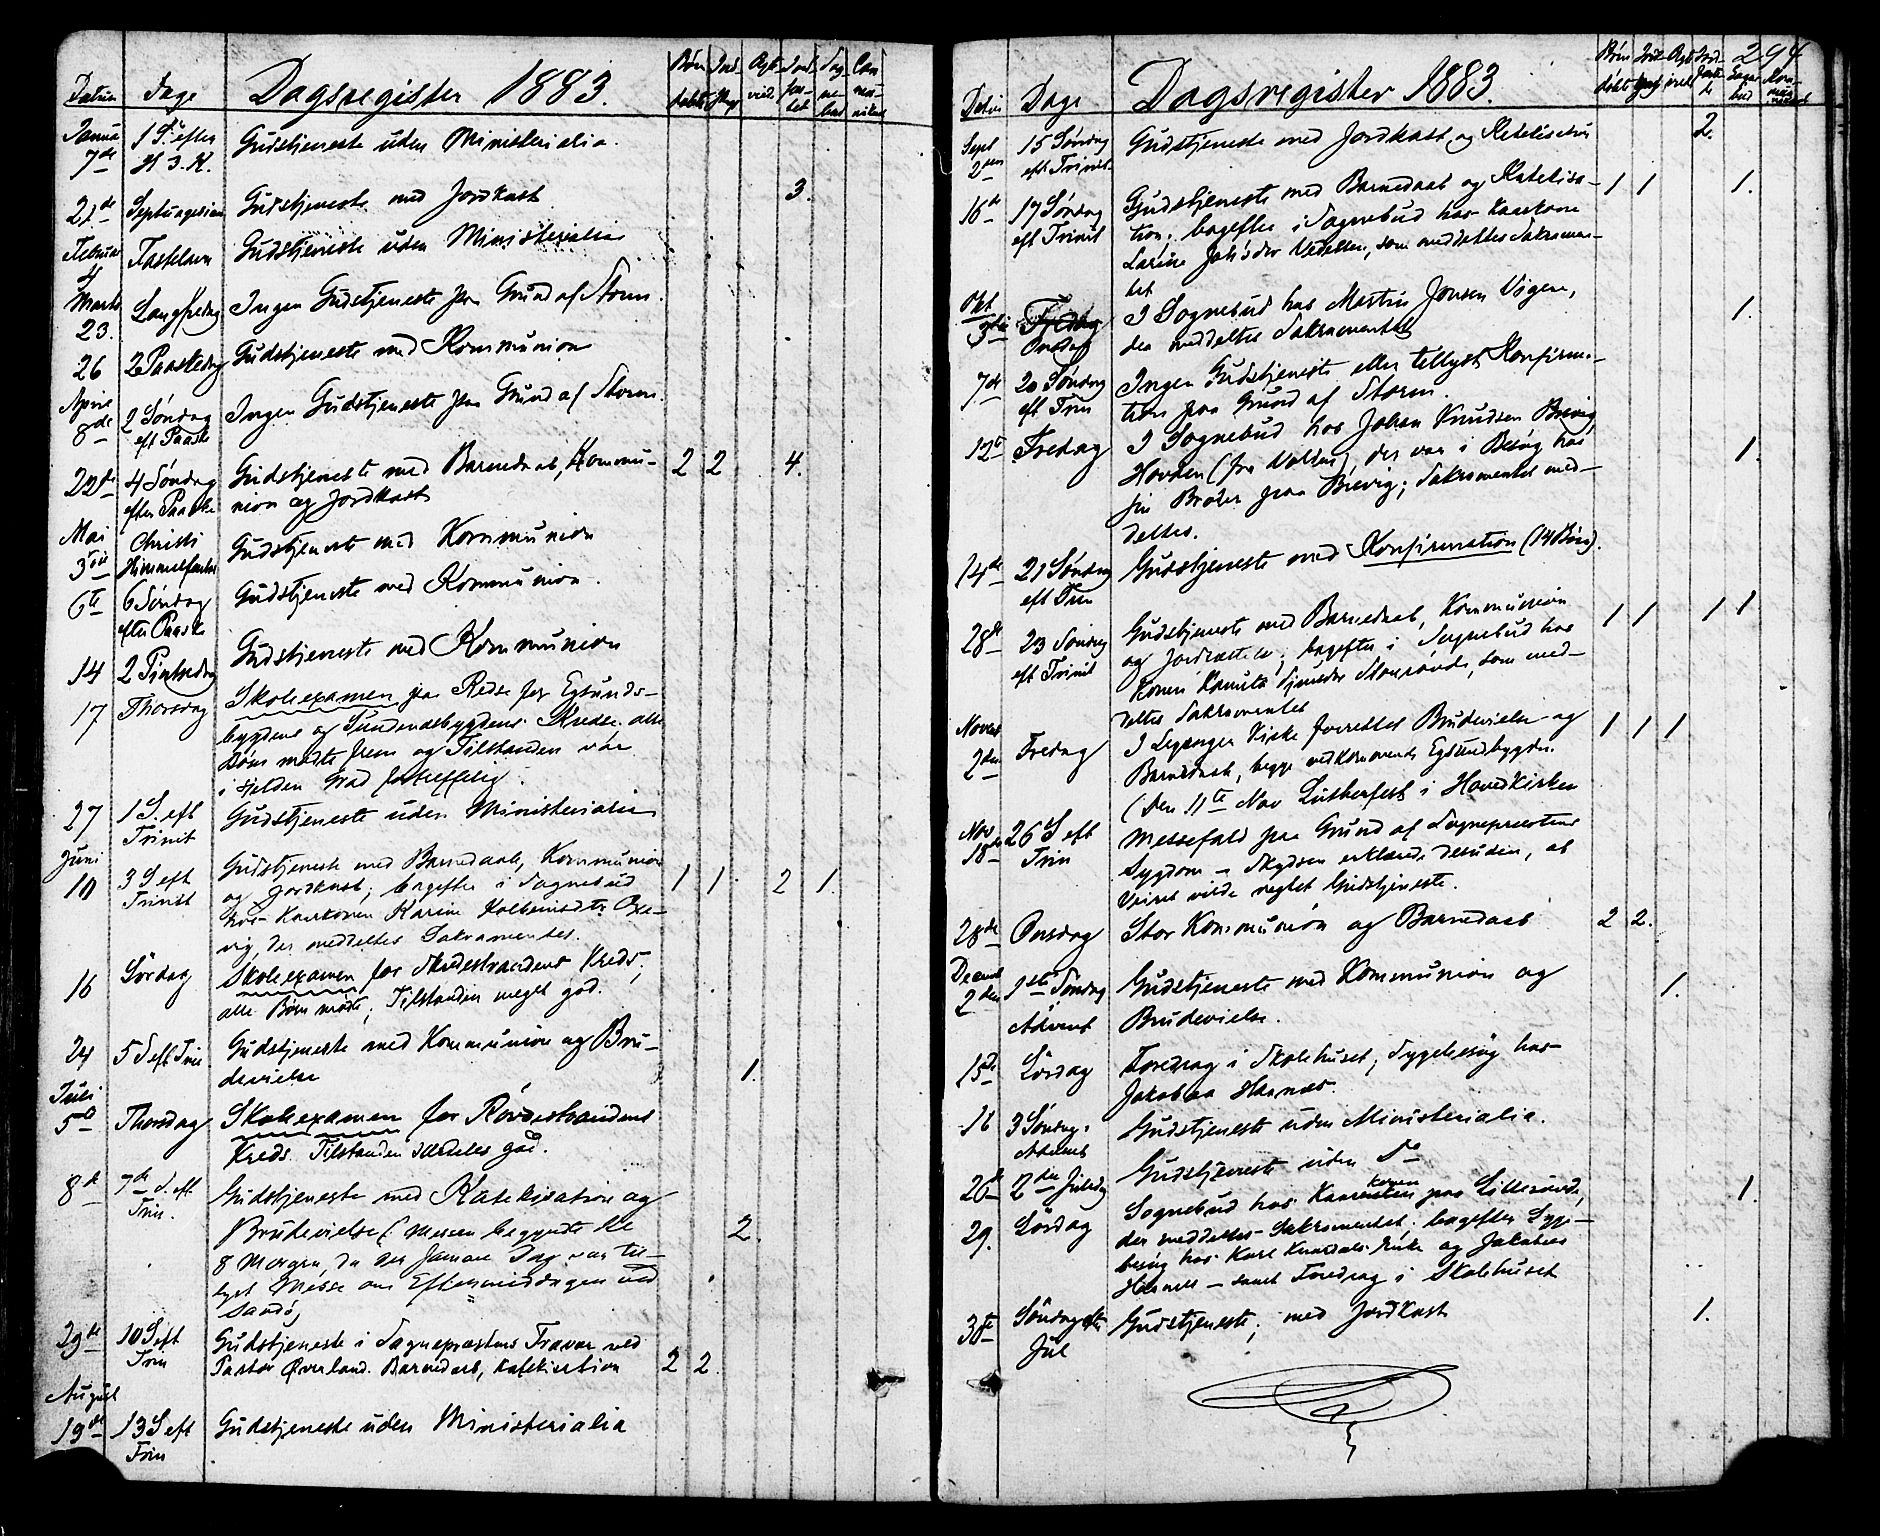 Datum Dage Dagsregister 1883. Børn døbte Ind- Ægt- vied. Jord- fæ- tet Sog- ne- bud Com- mu- nikant
Januar 1 S. efter
7de H 3. K. Gudstjeneste uden Ministerialia.
21de Septuagesima Gudstjeneste med Jordkast 3.
Februar
4 Fastelavn Gudstjeneste uden Ministerialia
Marts
23. Langfredag Ingen Gudstjeneste paa Grund af Storm.
26 2 Paaskedag Gudstjeneste med Kommunion
April
8de 2 Søndag Ingen Gudstjeneste paa Grund af Storm.
eft Paaske
22de 4 Søndag Gudstjeneste med Barnedaab, Kommu- 2 2 4.
efter Paaske nion og Jordkast
Mai Christi
3die Himmelfarts Gudstjeneste med Kommunion
6te 6 Søndag Gudstjeneste med Kommunion.
efter Paaske
14 2 Pintsedag Gudstjeneste med Kommunion
17 Thorsdag Skoleexamen paa for Egsunds-
bygdens og Kredse. alle
Børn mødte frem og Tilstanden var
i sjelden Grad fortreffelig.
27 1 S. eft Gudstjeneste uden Ministerialia
Trinit
Juni
10 3 S eft Gudstjeneste med Barnedaab, Kommunion 1 1 2 1.
Trinit og Jordkast; bagefter i Sognebud
hos Kaarkonen Karine
vig, der meddeltes Sakramentet.
16 Lørdag Skoleexamen for Kreds;
alle Børn mødte; Tilstanden meget god.
24 5 S eft Trin Gudstjeneste med Kommunion og Bru- 1.
devielse
Juli
5te Thorsdag Skoleexamen for Røvdestrandens
Kreds. Tilstanden særdeles god.
8de 7de S. eft. Gudstjeneste med Katekisation og
Trin. Brudevielse (Messen begyndte Kl 2.
8 Morgen, da der samme Dag var til-
lyst Messe om Eftermiddagen ved
Sandø)
29de 10 S eft Gudstjeneste i Sognepræstens Fravær ved
Trin Pastor Øverland. Barnedaab, Katekisation 2 2.
August
19de 13 S eft Gudstjeneste uden Ministerialia
Trin
294
Datum Dage Dagsregister 1883. Børn døbte Ægt- viede Jord- Sogne- bud Kom- mu- nikant
Sept 15 Søndag Gudstjeneste med Jordkast og Katekisation 2.
2den eft Trinit
16de 17 Søndag Gudstjeneste med Barnedaab og Katekisa- 1 1 1.
eft Trinit tion; bagefter i Sognebud hos Kaarkone
Larine som meddeltes Sakramen-
tet
Okt
3die Onsdag I Sognebud hos Martin Jonsen Vigen, 1.
der meddeltes Sakramentet
7de 20 Søndag Ingen Gudstjeneste eller tillyst Konfirma-
eft Trin tion paa Grund af Storm.
12te Fredag I Sognebud hos Johan Knudsen Brevig 1.
Hovden (fra ), der var i Besøg hos
sin Broder paa Brevig; Sakramentet med-
deltes.
14de 21 Søndag Gudstjeneste med Konfirmation (14 Børn).
eft Trin
28de 23 Søndag Gudstjeneste med Barnedaab, Kommunion 1 1 1 1
eft Trinit og Jordkastelse; bagefter i Sognebud hos
Konen som med-
deltes Sakramentet
Novbr
2den Fredag I Kirke forrettet Brudevielse og 1 1 1
Barnedaab, begge vedkommende Egsundbygden.
(Den 11te Nov Lutherfest i Hovedkirken
Nov
18de 26 S eft Messefald paa Grund af Sognepræstens
Trin Sygdom – Skydsen erklærede desuden, at
Veiret vilde negtet Gudstjeneste.
28de Onsdag Stor Kommunion og Barnedaab 2 2.
Decemb
2den 1ste Søndag Gudstjeneste med Kommunion og 1.
i Advent Brudevielse.
15de Lørdag Foredrag i Skolehuset; Sygebesøg hos
Jakobea Haanæs.
16 3 Søndag i Gudstjeneste uden Ministerialia.
Advent
26de 2den Juledag Gudstjeneste uden Do
29. Lørdag Sognebud hos Kaarkonen paa Lillesunde, 1.
der meddeltes Sakramentet. bagefter Syge-
besøg hos Karl Enke og Jakobea
Haanæs – samt Foredrag i Skolehuset
30te Søndag eft Gudstjeneste; med Jordkast 1.
Jul